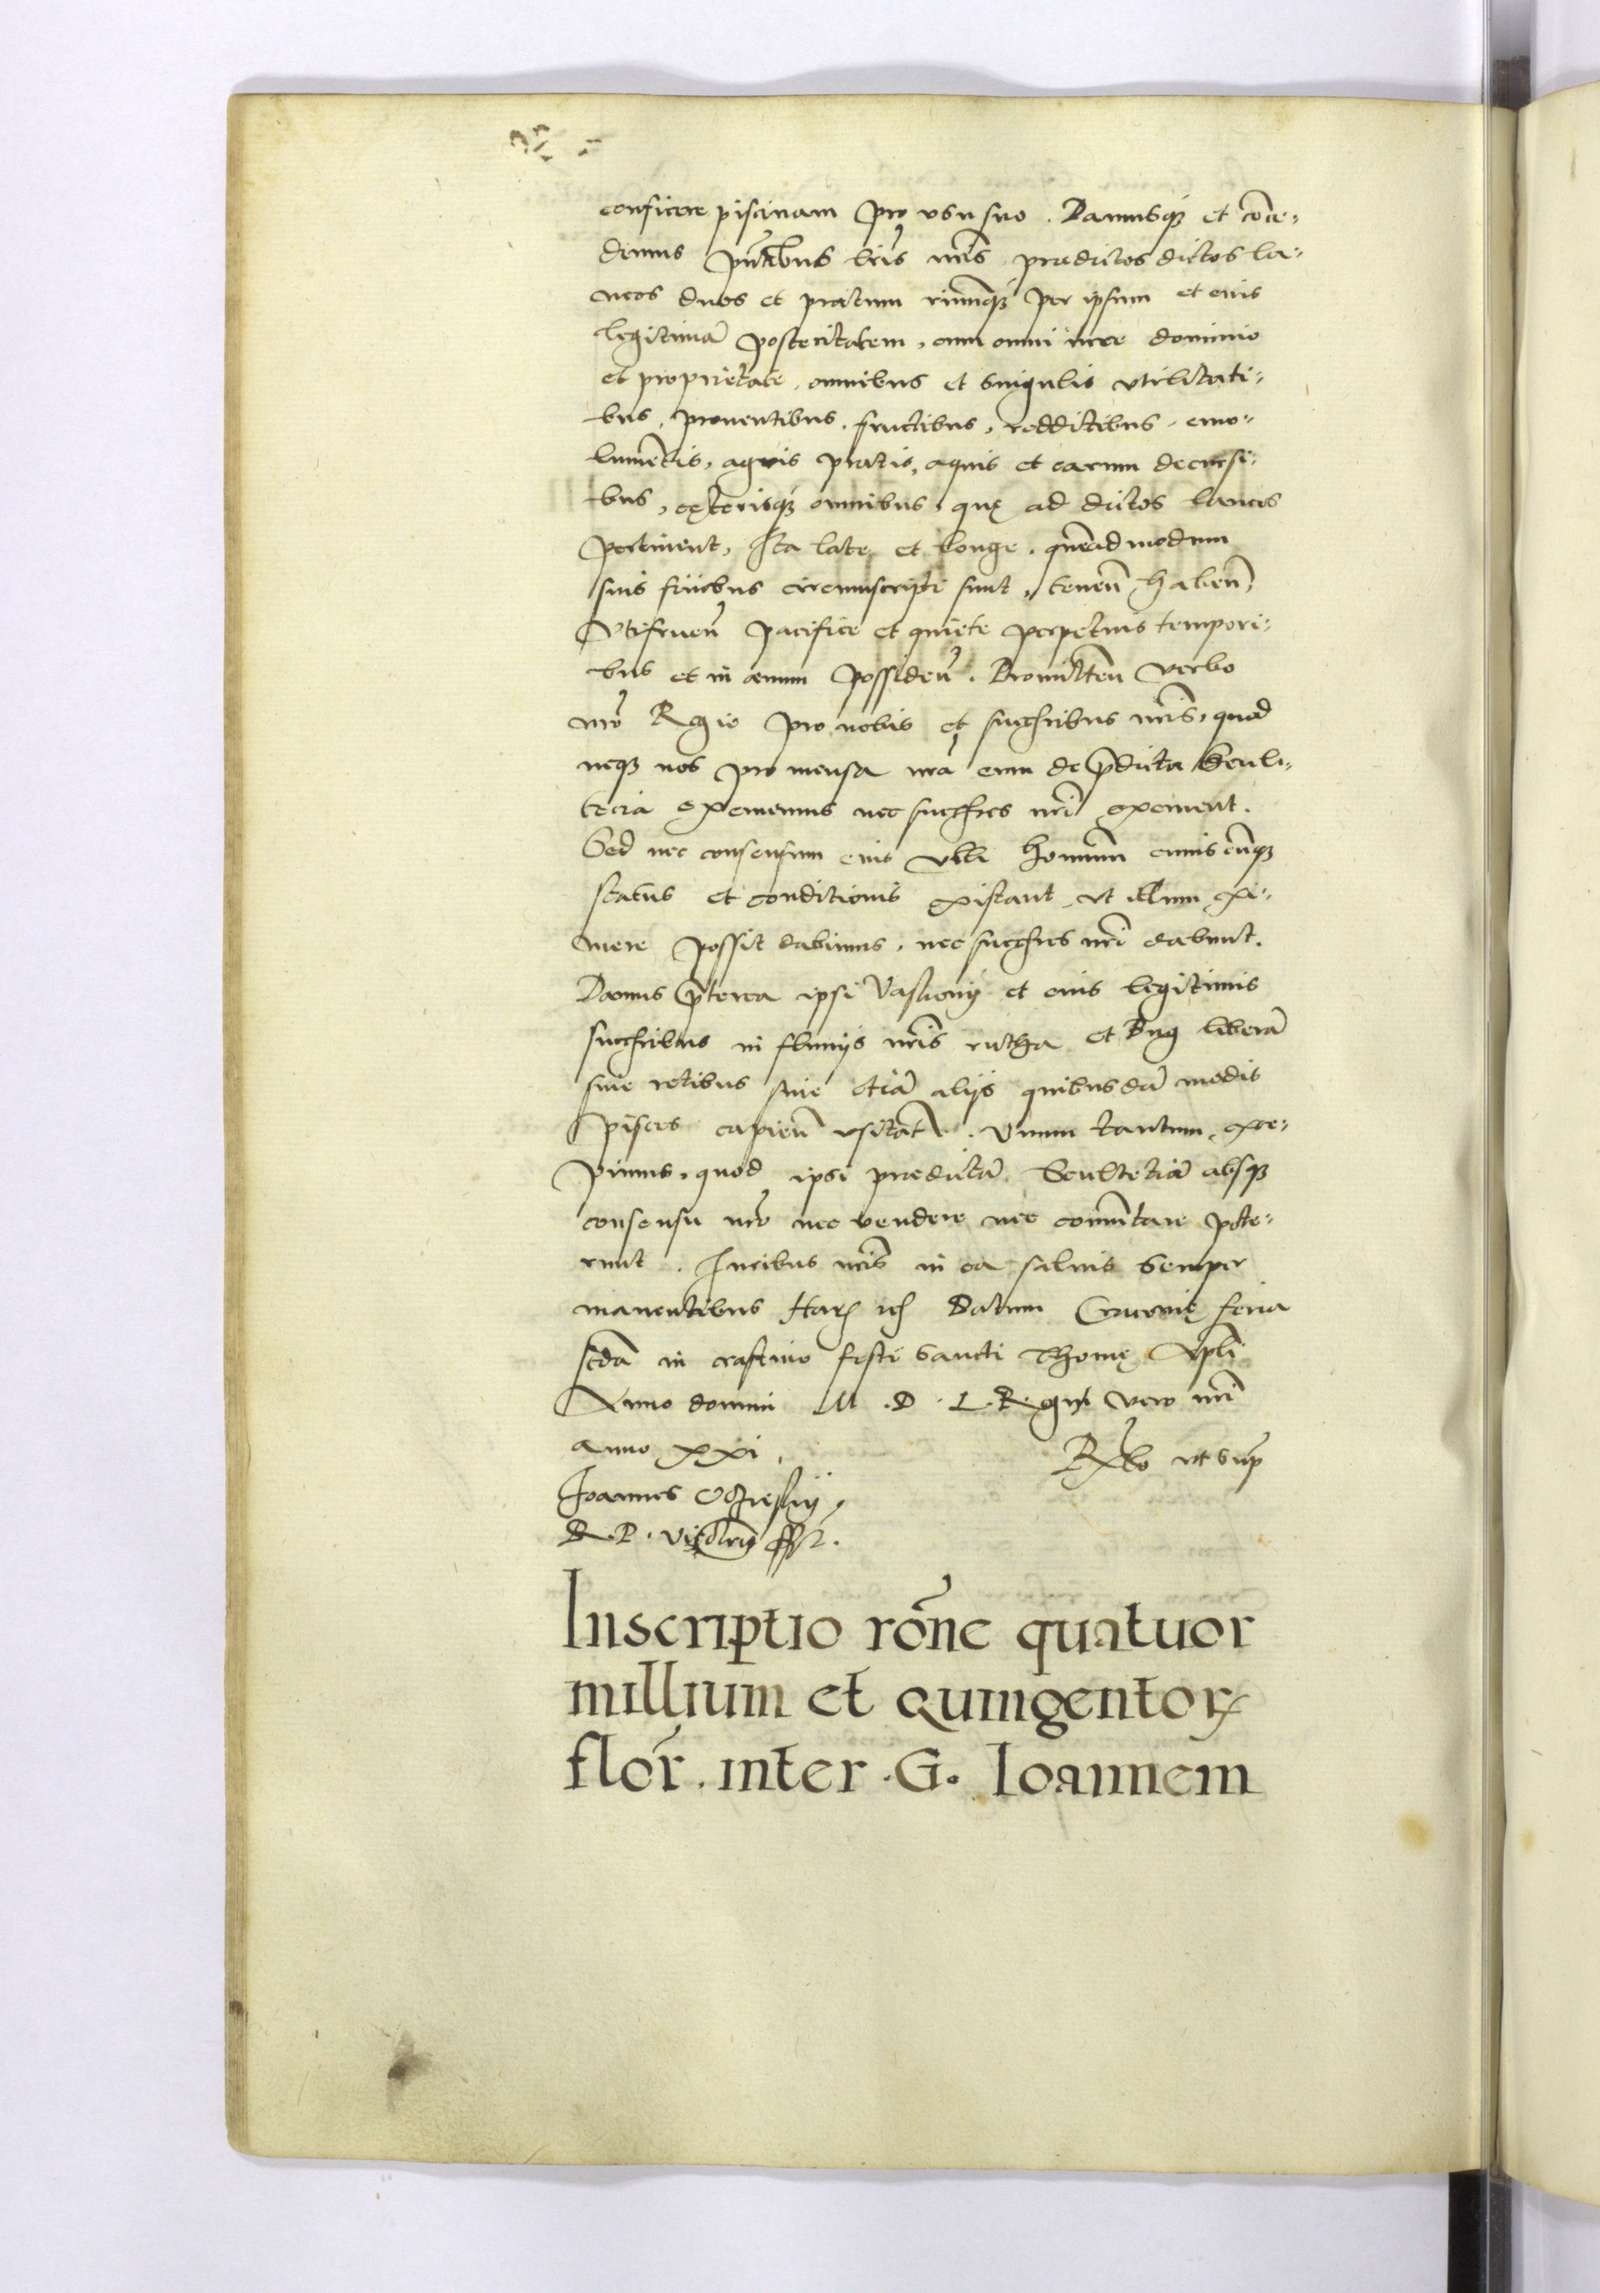 conficere piscinam pro usu suo. Damusq̃ et conce-
dimus pñtibus lris nris. predictos dictos la-
neos duos et pratum rivumq̃ per ipsum et eius
legitimã posteritatem, cum omni iure dominio
et proprietate, omnibus et singulis utilitati-
bus, proventibus, fructibus, redditibus, emo-
lumẽtis, agris pratis, aquis et earum decursi-
bus, cęterisq̃ omnibus, quę ad dictos laneos
pertinent, Ita late et longe, quẽadmodum
suis finibus circumscripti sunt, teneñ habeñ,
Utifrueñ pacifice et quiete perpetuis tempori-
bus et in ævum possideñ. Promitteñ verbo
nrõ Regio pro nobis et succribus nris, quod
neq̃ nos pro mensa nrã eum de p̃dicta Scul-
tecia eximemus nec succres nri eximent.
Sed nec consensum eius ulli hominum cuiuscunq̃
status et conditionis existant, ut illum exi-
mere possit dabimus, nec succres nri dabunt.
Damus p̃terea ipsi Vasliovij et eius legitimis
succribus in fluvijs nris rutha et Bug liberã
sive retibus sive etiã alijs quibusdã modis
pisces capieñ usitatę. Unum tantum, exce-
pimus, quod ipsi prædictã Scultetiã absq̃
consensu nrõ nec vendere nec comutare pote-
runt. Iuribus nris in ea salvis semper
manentibus Harũ rẽ Datum Cracovię feria
scdã in crastino festi Sancti Thomę Apli
Anno domini M. D. L. Regni vero nri
anno xxi. Rẽlo ut supr̃
Ioannes Ocieskij.
R. P. Vicecancellarius sst.
Inscriptio rõne quatuor
millium et Quingentorꝝ
flor̃. inter .G. Ioannem